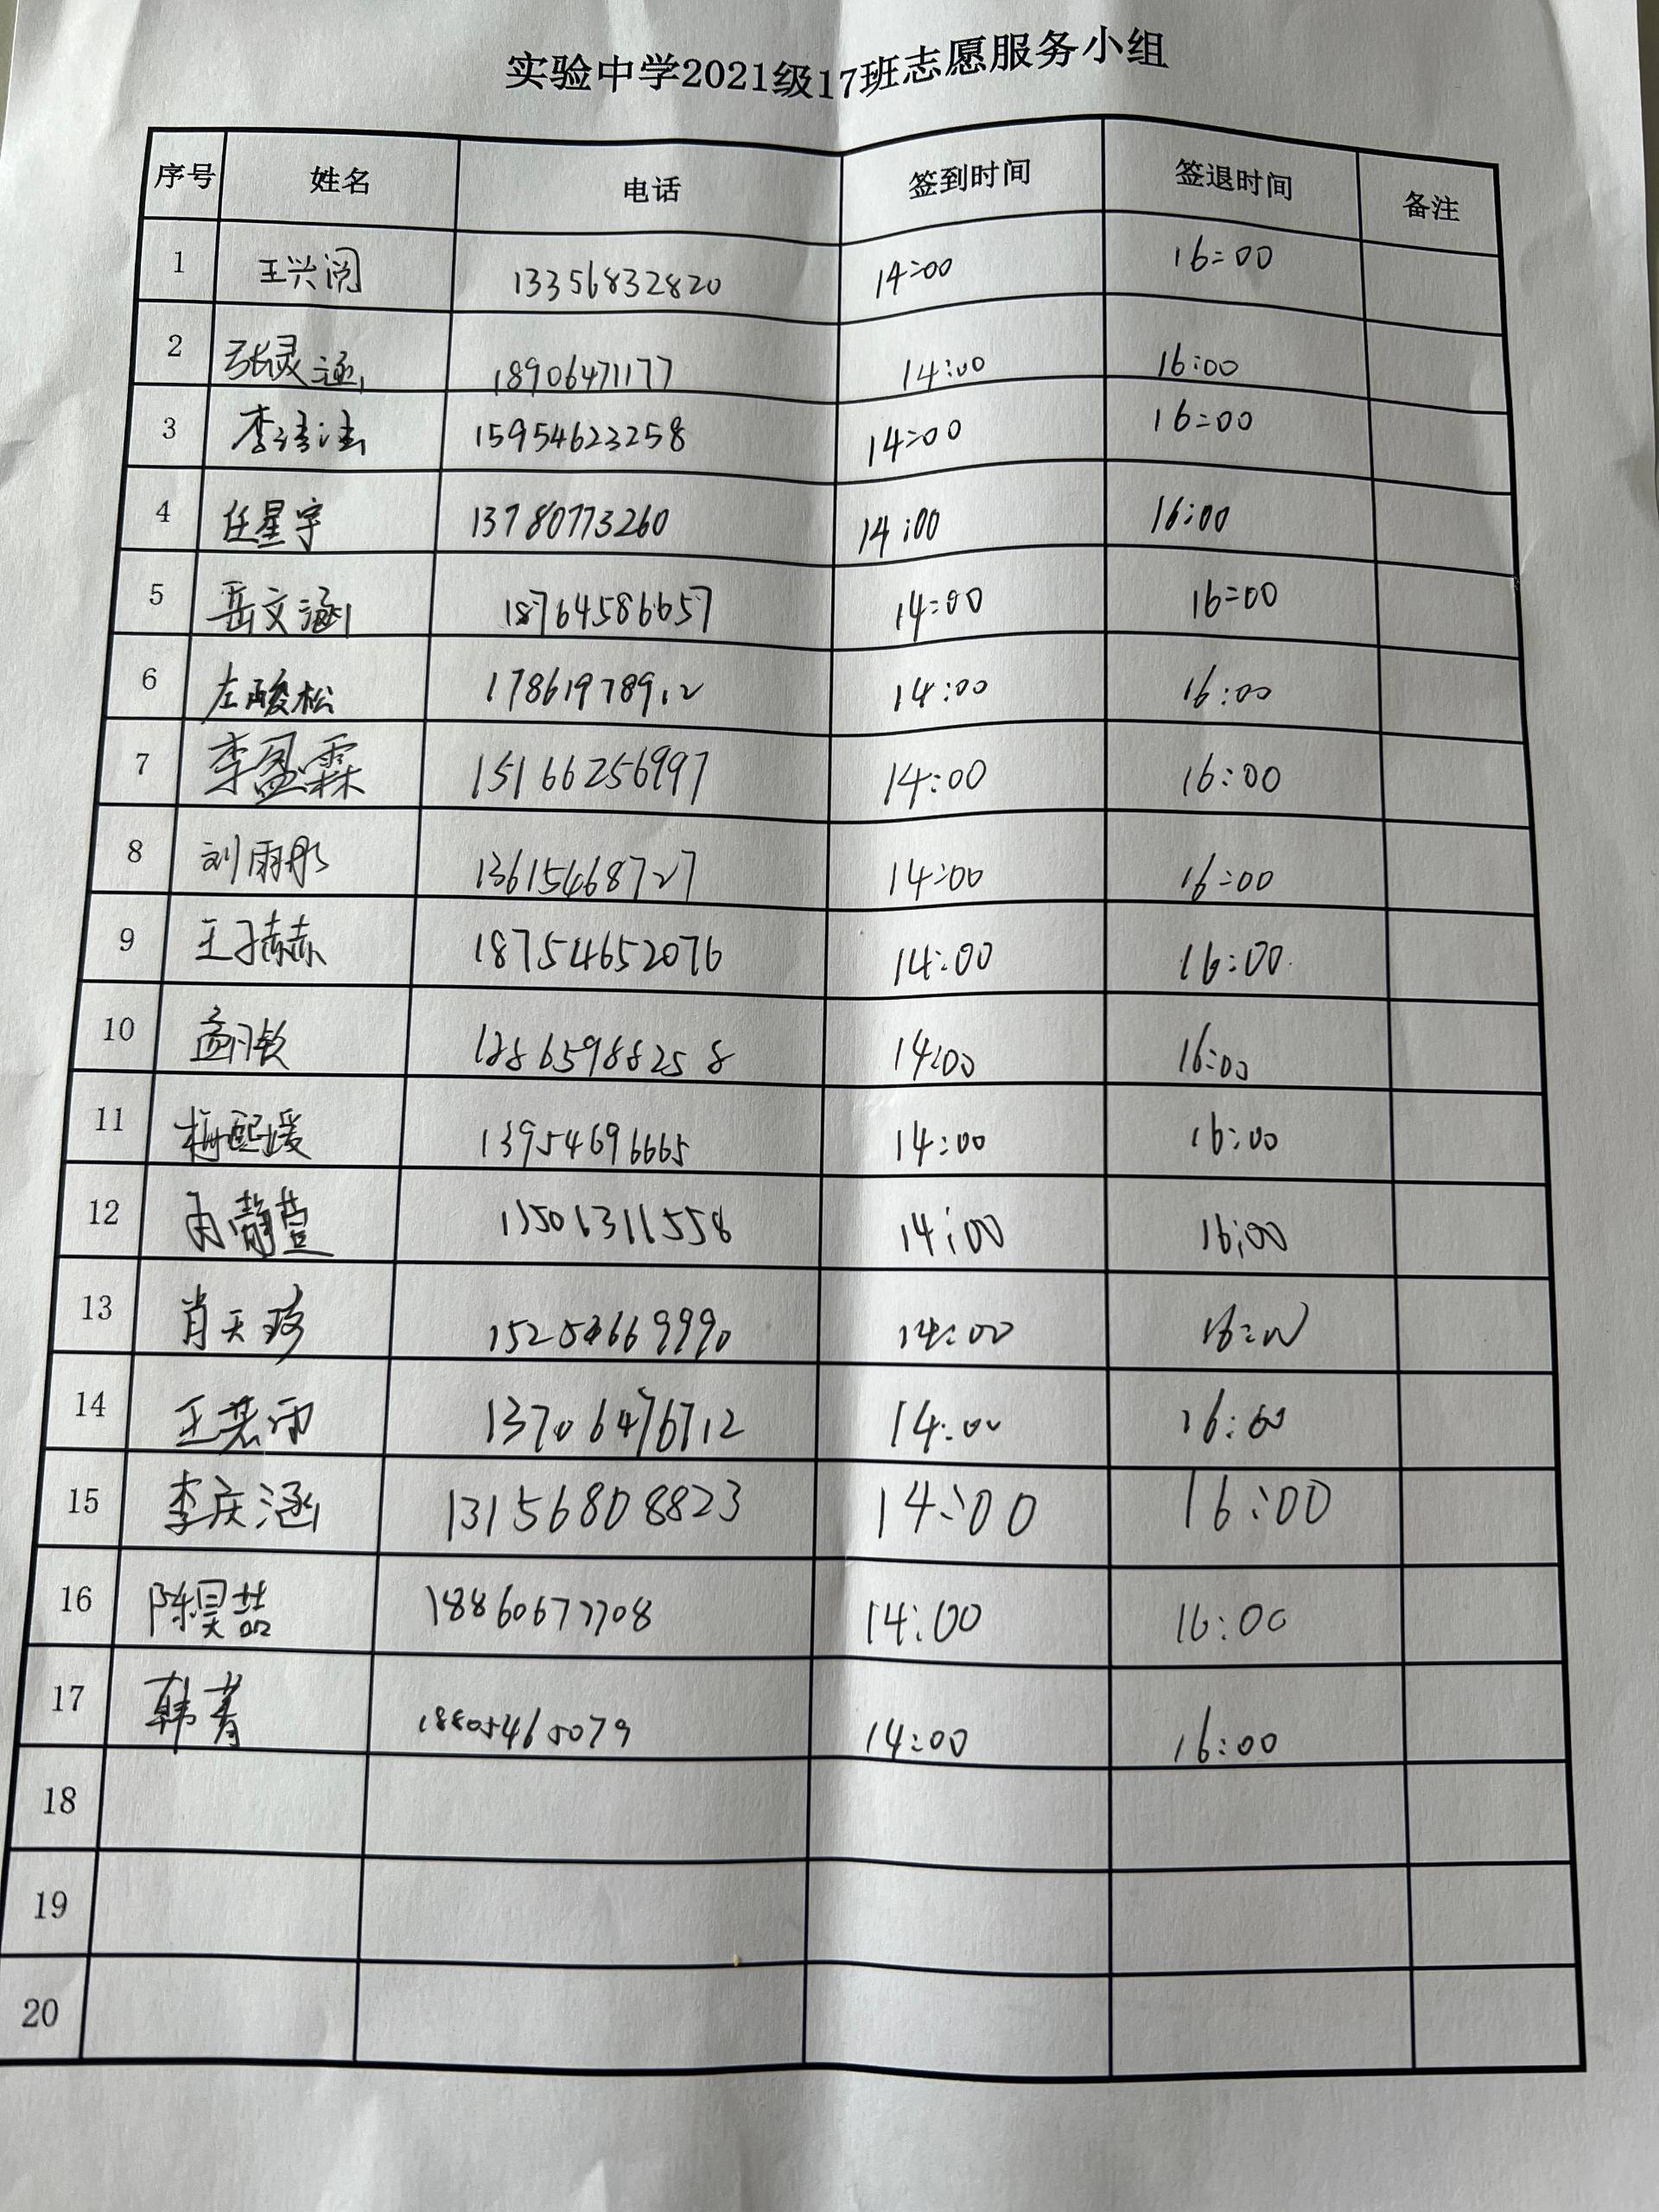 实验中学2021级17班志愿服务小组
序号 姓名 电话 签到时间 签退时间 备注
1 王兴阅 13356832820 14:00 16:00
2 张灵涵 18906471177 14:00 16:00
3 李 15954623258 14:00 16:00
4 任星宇 13780773260 14:00 16:00
5 岳文涵 18764586657 14:00 16:00
6 左酸松 17861978912 14:00 16:00
7 李盈霖 15166256997 14:00 16:00
8 刘雨彤 13615468727 14:00 16:00
9 王子赫 18754652076 14:00 16:00
10 孟 14:00 16:00
11 梅熙媛 13954696665 14:00 16:00
12 静萱 14:00 16:00
13 肖天 14:00 16:00
14 王若雨 13706476712 14:00 16:00
15 李庆涵 13156808823 14:00 16:00
16 陈昊喆 18860677708 14:00 16:00
17 韩菁 18805465079 14:00 16:00
18
19
20